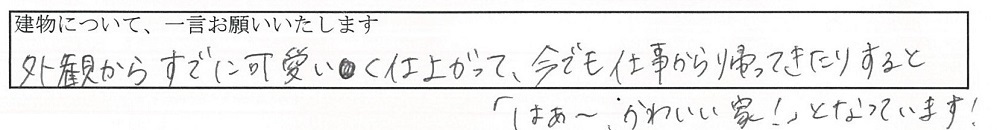 建物について、一言お願いいたします
外観からすでに可愛いく仕上がって、今でも仕事から帰ってきたりすると
「はぁ～、かわいい家！」となっています！